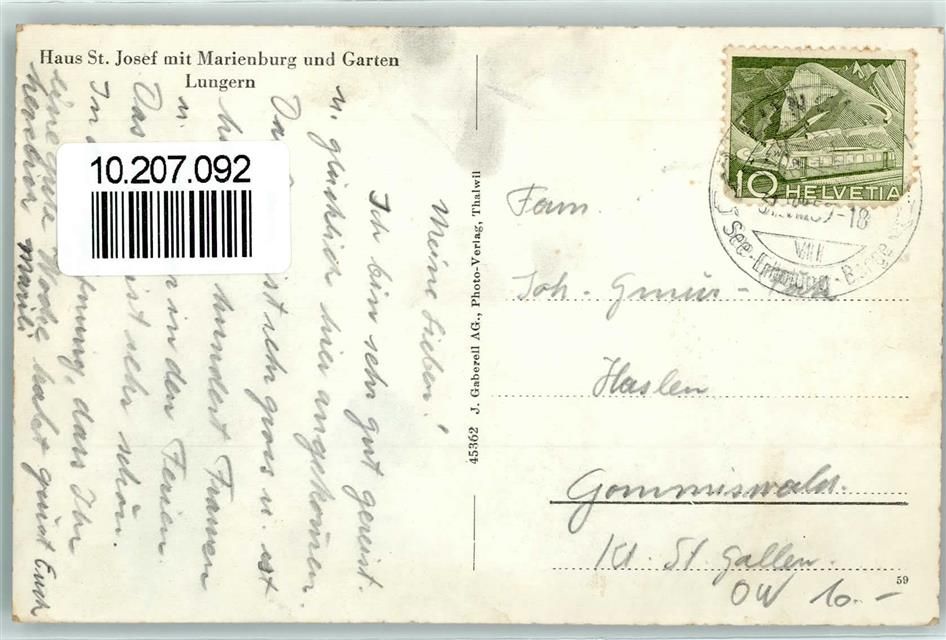 Haus St. Josef mit Marienburg und Garten
Lungern
10.207.092
Meine Lieben!
Ich bin sehr gut gereist
u. glücklich hier angekommen.
Das ist sehr gross u. ist
hundert Frauen
u. in den Ferien
Das ist sehr schön.
In Hoffnung, dass Ihr
eine gute Woche habt grüsst Euch
herzlich Marili
45362 J. Gaberell AG., Photo-Verlag, Thalwil
10 HELVETIA
-18
VIII
See-
Fam.
Joh. Gmür -
Haslen
Gommiswald.
Kt. St. Gallen.
59
OW 10.-